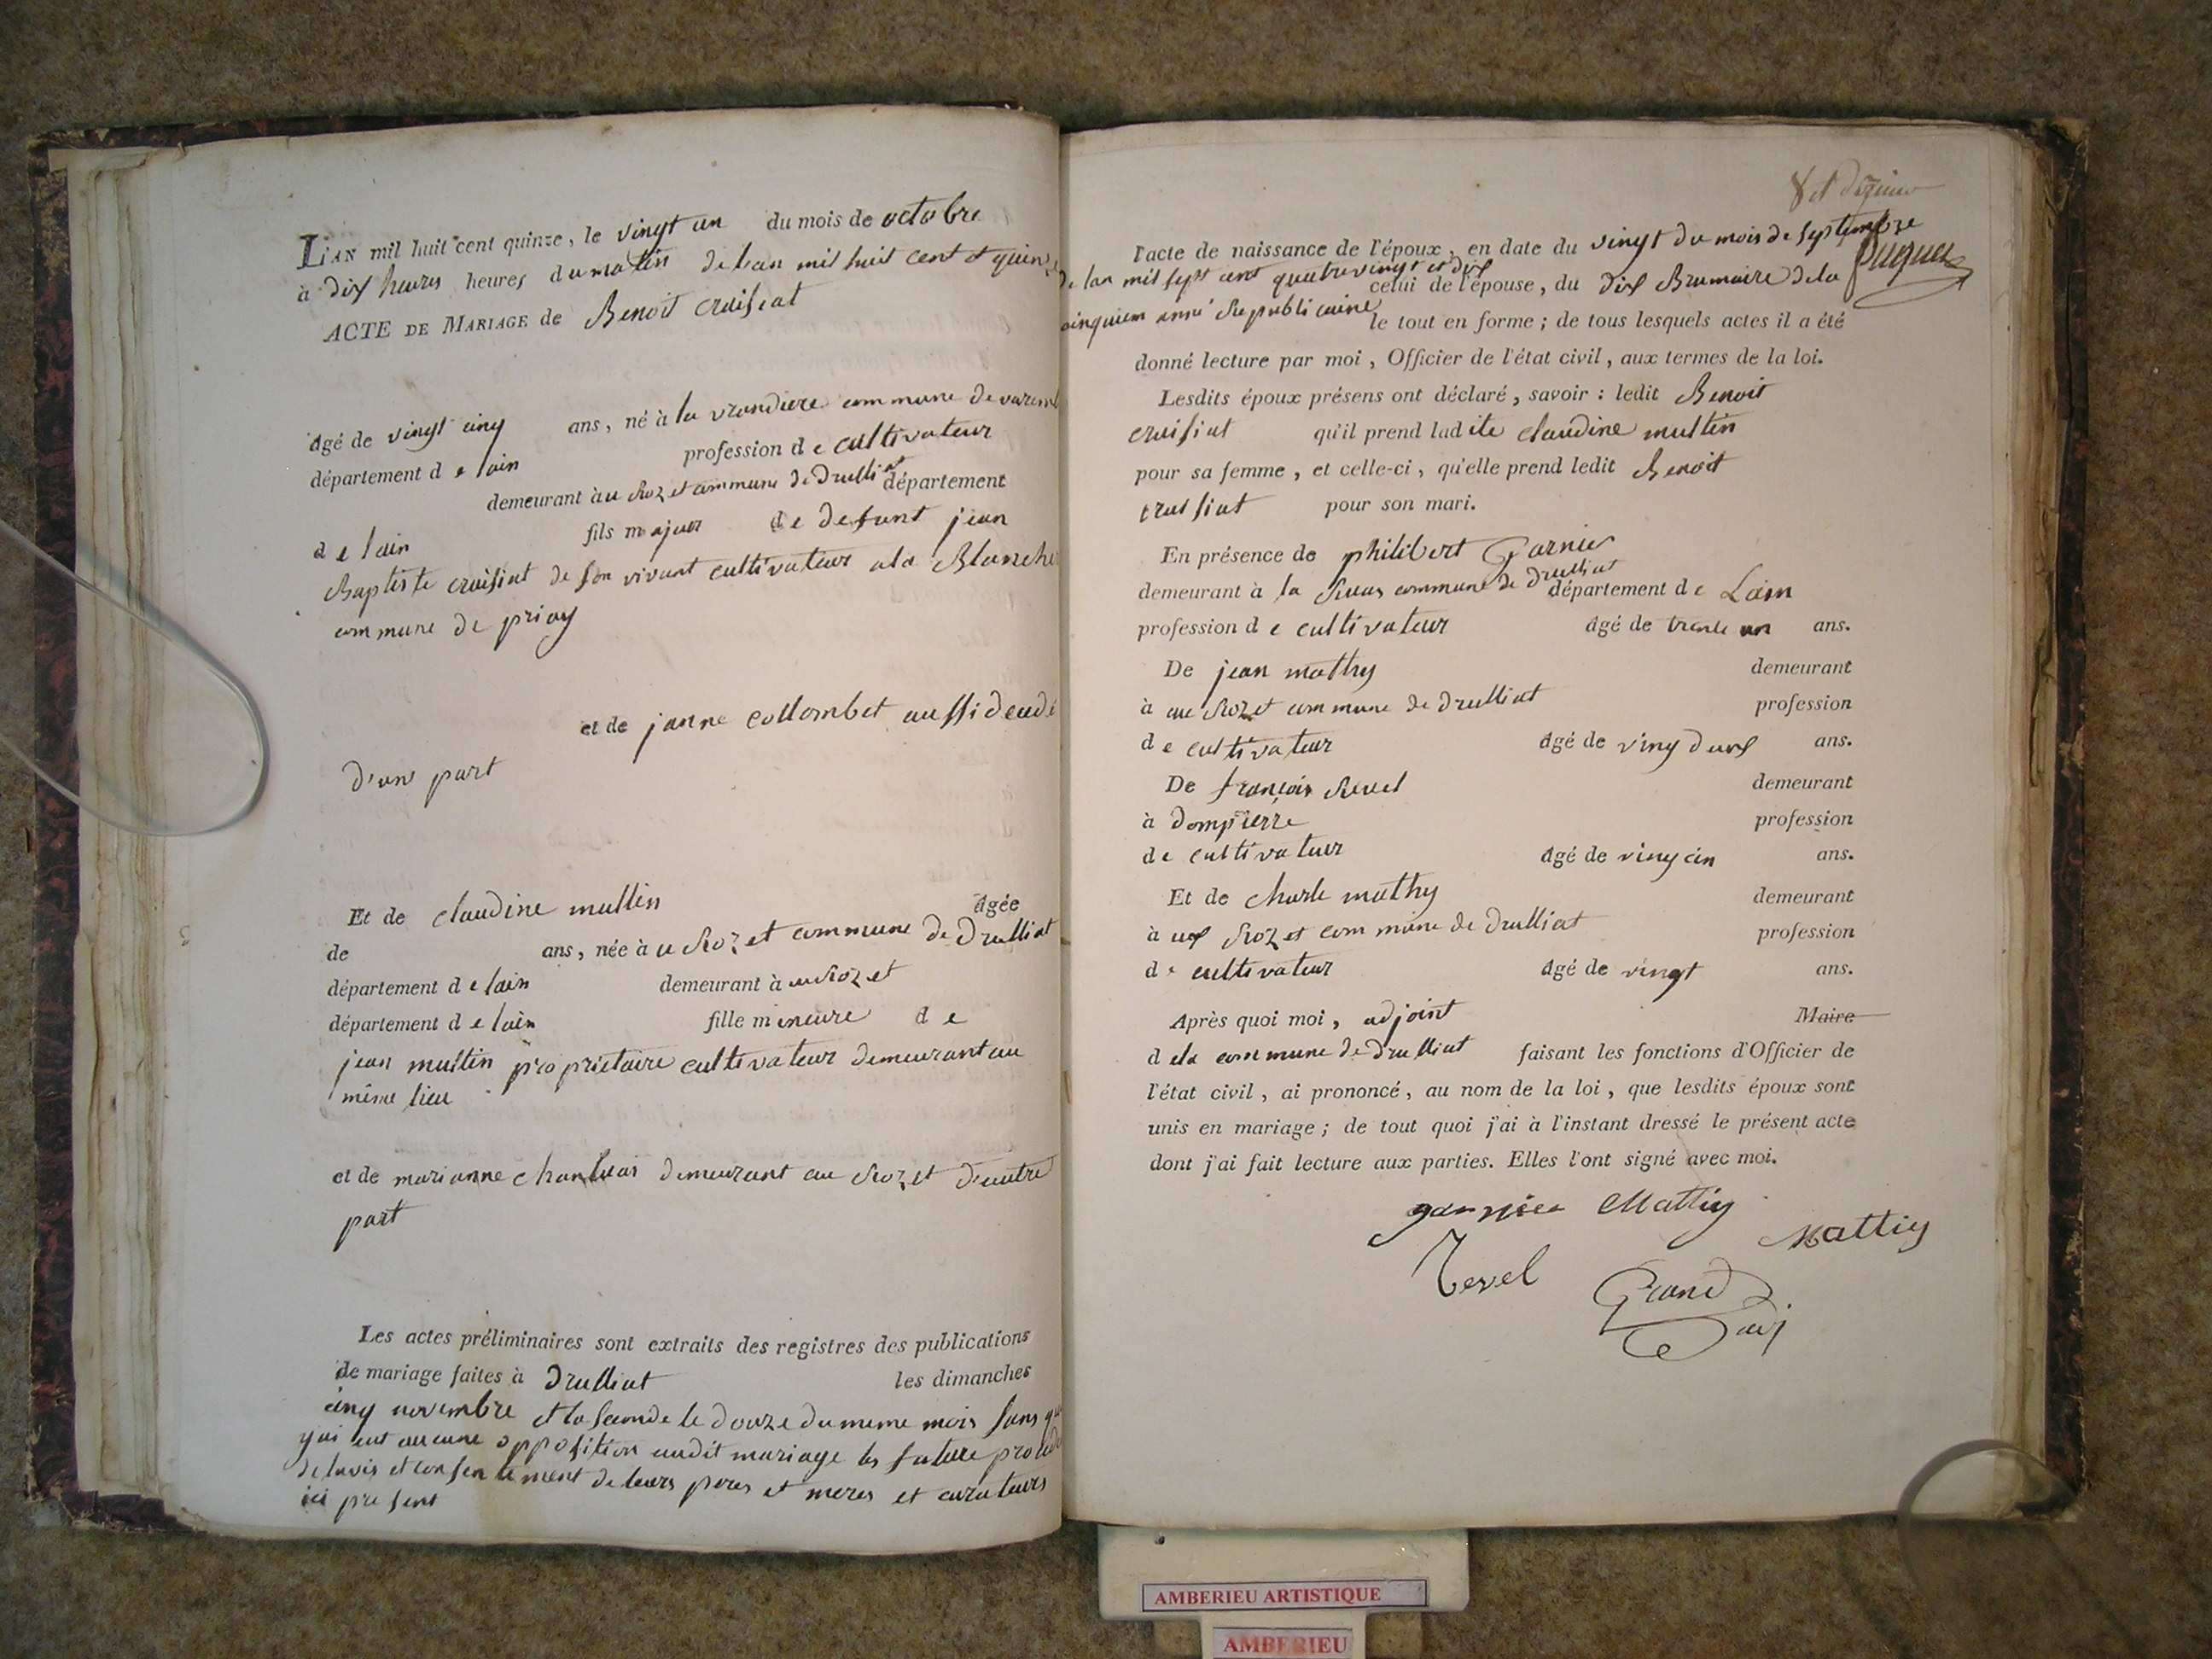 L'AN mil huit cent quinze, le vingt un du mois de octobre
à dix heures heures du matin de lan mil huit cent et quinze
ACTE DE MARIAGE de Benoit croisiat
âgé de vingt cinq ans, né à la vrandiere commune de
département de lain profession de cultivateur
demeurant à au Rozet commune de Drulliat département
de lain fils majeur de defunt jean
Baptiste croisiat de son vivant cultivateur a la Blanche
commune de priay
et de janne collombet aussi décédé
d'un part
Et de claudine multin âgée
de ans, née à u Rozet commune de Drulliat
département de lain demeurant à au Rozet
département de lain fille mineure de
jean multin propriétaire cultivateur demeurant au
même lieu
et de marianne demeurant au Rozet d'autre
part
Les actes préliminaires sont extraits des registres des publications
de mariage faites à Drulliat les dimanches
cinq novembre et la seconde le douze du meme mois sans qu
y ai eut aucune opposition audit mariage les future
de lavis et consentement de leurs peres et meres et curateurs
ici present
8 et dixieme
l'acte de naissance de l'époux, en date du vingt du mois de septembre
de lan mil sept cent quatre vingt et dix celui de l'épouse, du dix Brumaire de la
cinquiem anné Republicaine le tout en forme; de tous lesquels actes il a été
donné lecture par moi, Officier de l'état civil, aux termes de la loi.
Lesdits époux présens ont déclaré, savoir : ledit Benoit
croisiat qu'il prend ladite claudine multin
pour sa femme, et celle-ci, qu'elle prend ledit Benoit
croisiat pour son mari.
En présence de philibert Garnier
demeurant à la commune de Drulliat département de Lain
profession de cultivateur âgé de trente un ans.
De jean mathy demeurant
à au Rozet commune de Drulliat profession
de cultivateur âgé de ving deux ans.
De françois Revel demeurant
à dompierre profession
de cultivateur âgé de ving cin ans.
Et de charle mathy demeurant
à au Rozet commune de Drulliat profession
de cultivateur âgé de vingt ans.
Après quoi moi, adjoint Maire
de la commune de Drulliat faisant les fonctions d'Officier de
l'état civil, ai prononcé, au nom de la loi, que lesdits époux sont
unis en mariage; de tout quoi j'ai à l'instant dressé le présent acte
dont j'ai fait lecture aux parties. Elles l'ont signé avec moi.
garnier Mattiy
Mattiy
Revel
Grand
adj
AMBERIEU ARTISTIQUE
AMBERIEU